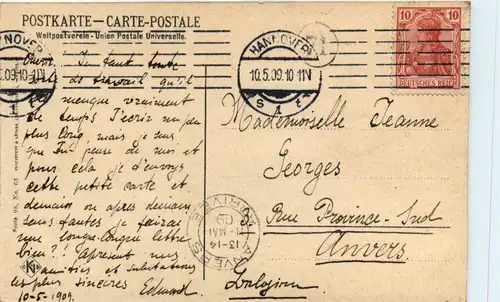 POSTKARTE – CARTE-POSTALE
Weltpostverein - Union Postale Universelle.
HANNOVER
10.5.09.10-11V
10
DEUTSCHES REICH
faut toute
de travail qu'il
manque vraiment
de temps J'écris un peu
plus long, mais je sais
que Tu de moi et
pour cela je d'envoye
cette petite carte et
demain ou après demain
sans fautes je fairai
une longue-longue lettre
bien?!
amitiés et salutations
les plus sincères Edmond
10-5-1909.
Mademoiselle Jeanne
Georges
Rue Province-Sud
Anvers
Belgien
ANVERS
13-14
MAI
09
ARRIVÉE